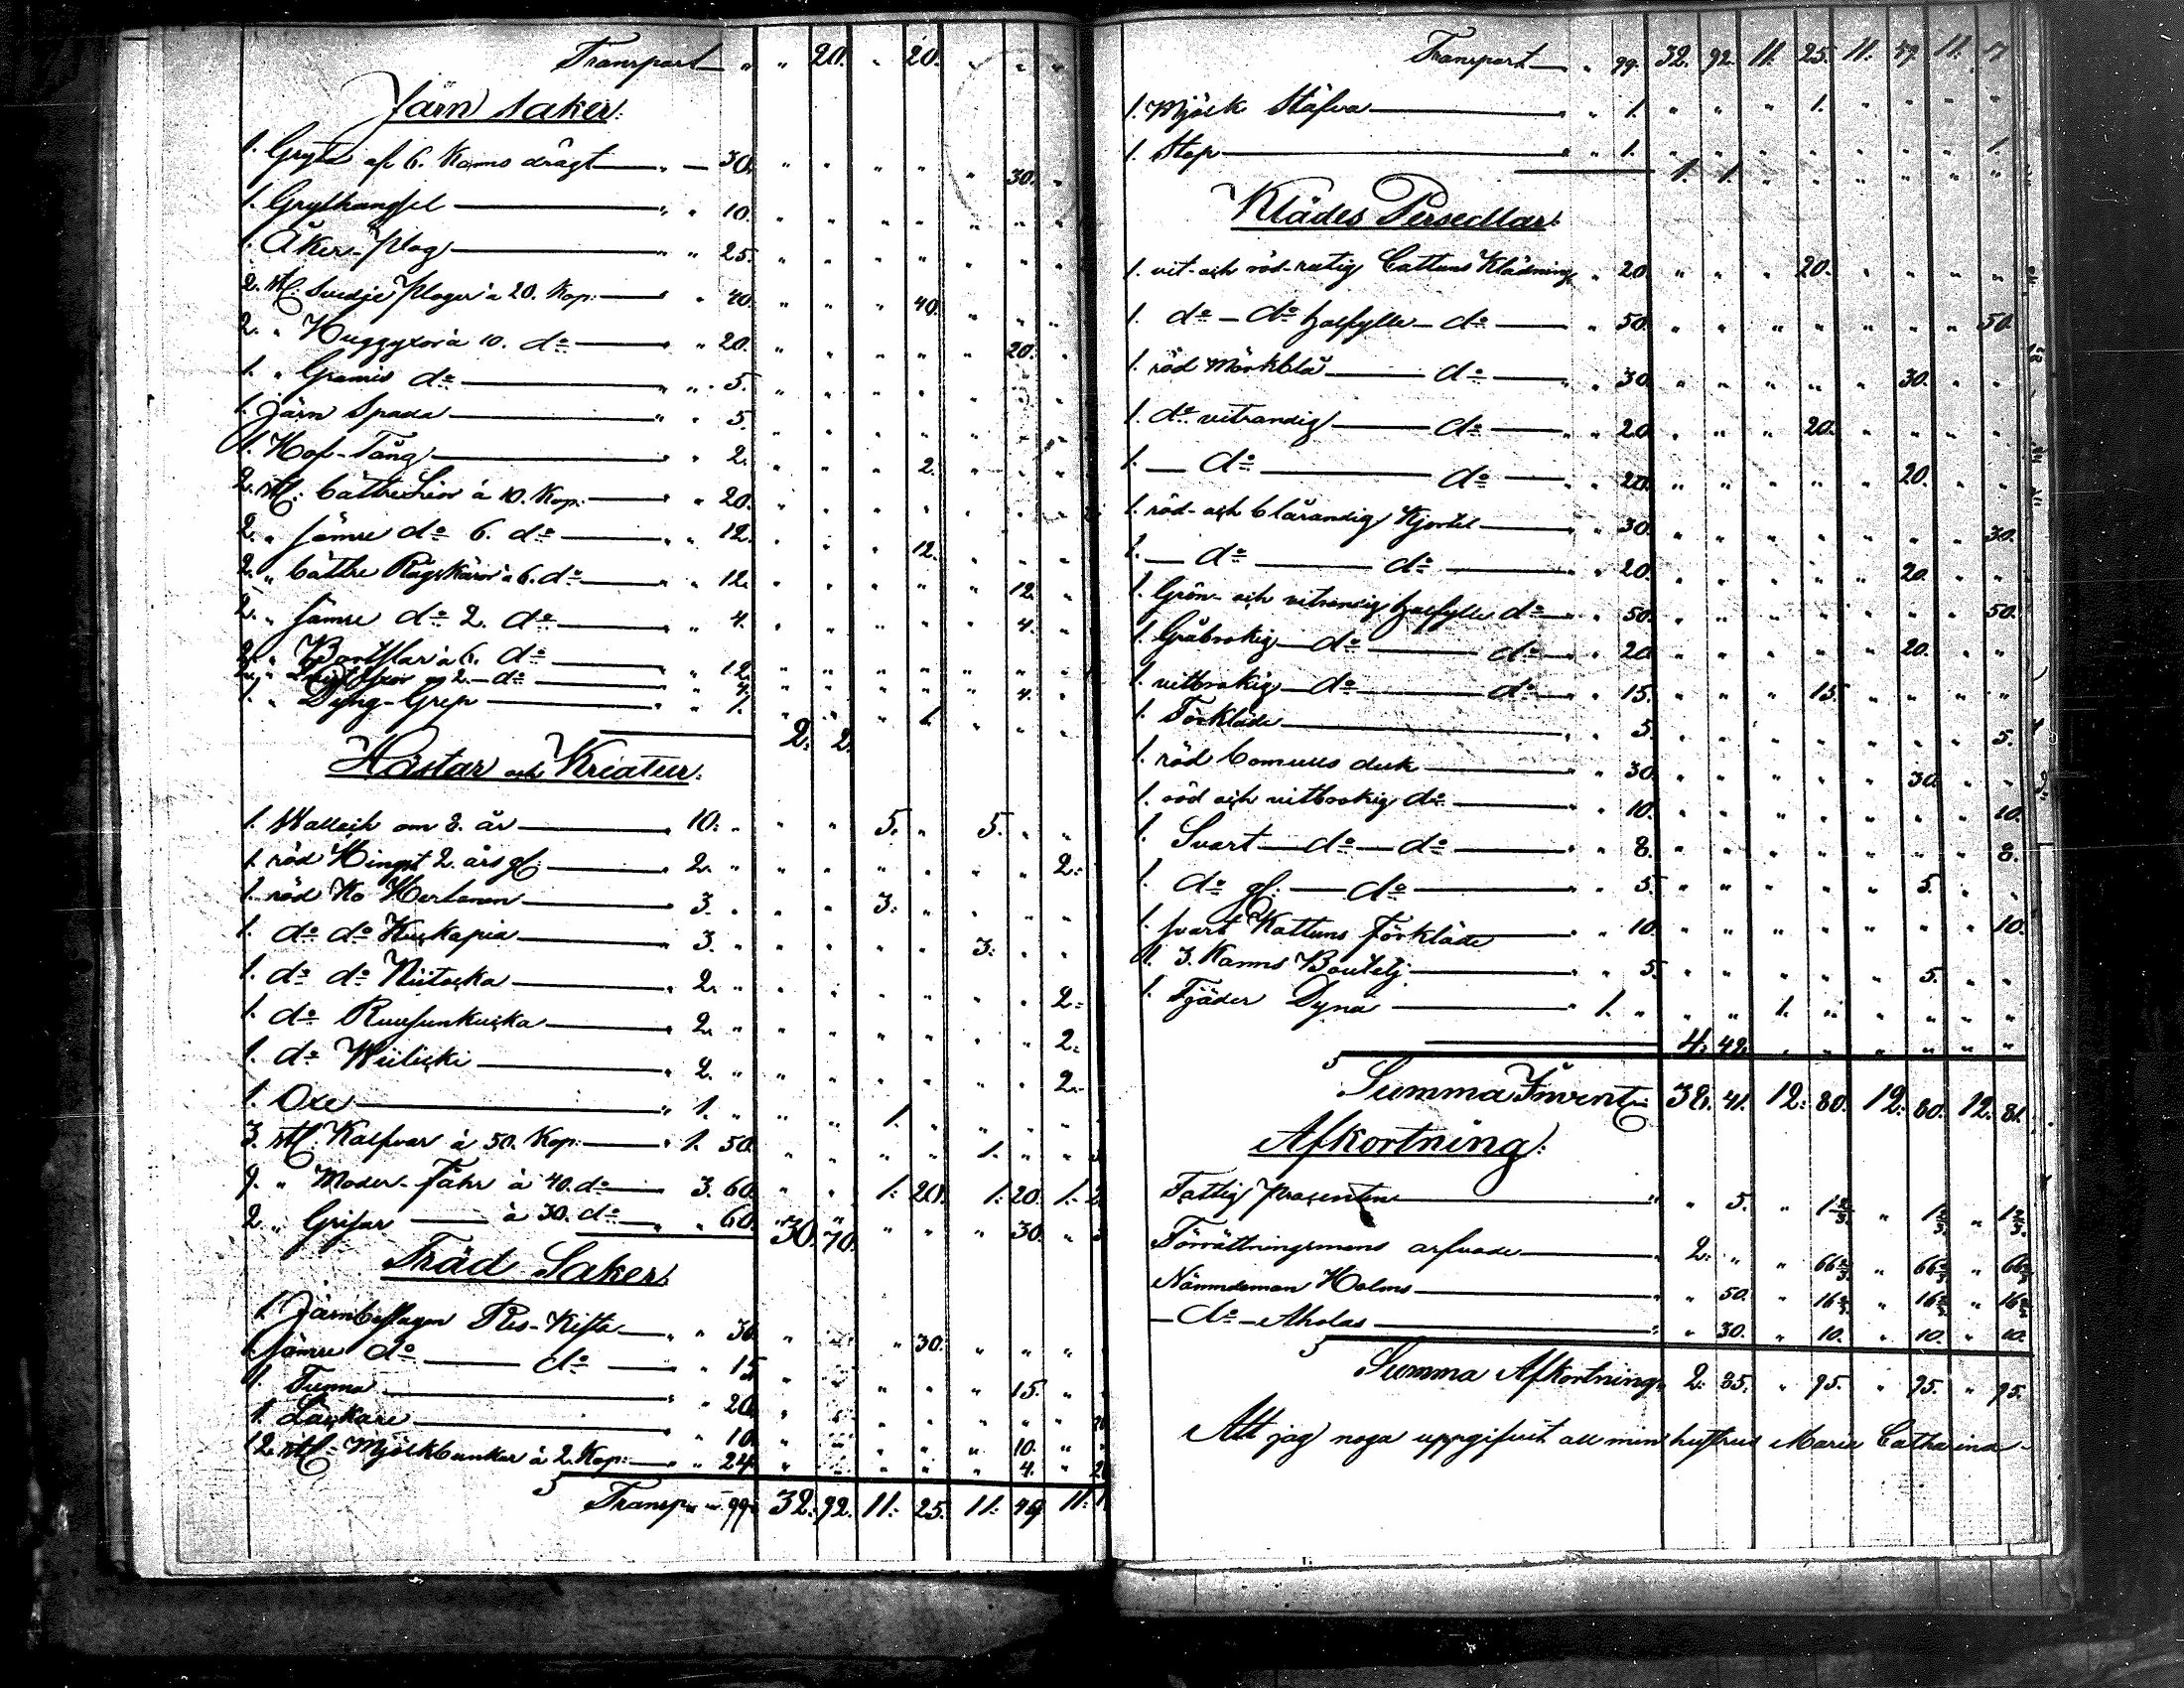 Transport " " 20. " 20. " " "
Järn saker:
1. Gryta af 6. Kanns drägt — " — 30. " " " " " 30. "
1. Grythangsel — " " 10. " " " " " " "
1. Åker-Plog — " " 25. " " " " " " "
2. st: Svedje Plogar à 20. Kop: — " 40. " " " 40. " " "
2. " Huggyxor à 10. do — " " 20. " " " " " 20. "
1. " do — " " 5. " " " " " " "
1. Järn Spada — " " 5. " " " " " " "
1. Hof-Tång — " " 2. " " " 2. " " "
2. st: bättre Liar à 10. Kop: — " " 20. " " " " " " "
2. " sämre do 6. do — " " 12. " " " 12. " " "
2. " bättre Rågskäror à 6. do — " " 12. " " " " " 12. "
2. " sämre do 2. do — " " 4. " " " " " 4. "
2. " à 6. do — " 12. " " " " " " "
2. " 2. — do — " " 4. " " " " " 4. "
1. " Dyng-Grep — " " 1. " " " 1. " " "
2. 2.
Hästar och Kreatur:
1. Wallach om 8. år — " 10. " " " 5. " 5. " "
1. röd Hingst 2. års gl: — " 2. " " " " " " " 2.
1. röd Ko Hertanen — 3. " " " 3. " " " "
1. do do Kuskapia — " 3. " " " " " 3. " "
1. do do Niitocka — " 2. " " " " " " " 2.
1. do Ruusunkucka — " 2. " " " " " " " 2.
1. do Wiilicki — " 2. " " " " " " " 2.
1. Oxe — " 1. " " " 1. " " " "
3. st: Kalfvar à 50. Kop: — " 1. 50. " " " " 1. " "
9. " Moder-Fåhr à 40. do — 3. 60. " " 1. 20. 1. 20. 1. 2
2. " Grisar — à 30. do — " " 60. " " " " " 30. " 3
30. 70.
Träd Saker:
1. Järnbeslagen Res-Kista — " " 30. " " " 30. " " "
1. sämre do — do — " 15. " " " " " 15. "
1. Tunna — " " 20. " " " " " " 20
1. — " 10. " " " " " 10. "
12. st: Mjölkbunkar à 2. Kop: — " " 24. " " " " " 4. " 20
Transp: " " 99. 32. 92. 11. 25. 11. 49. 11. 1
Transport " 99. 32. 92. 11. 25. 11. 59. 11. 17
1. Mjölk Stäfva — " " 1. " " " 1. " " " "
1. Stop — " " 1. " " " " " " " 1.
1. 1. " " " " " "
Klädes Persedlar:
1. vit- och röd-rutig Cattuns Klädning " 20. " " " 20. " " " "
1. do — do halfylle — do — " 50. " " " " " " " 50.
1. röd Mörkblå — do — " " 30. " " " " " 30. " "
1. do vitrandig — do — " " 20. " " " 20. " " " "
1. — do — do — " " 20. " " " " " 20. " "
1. röd- och blårandig Kjortel — " " 30. " " " " " " " 30.
1. — do — do — " " 20. " " " " " 20. " "
1. Grön- och vitrandig halfylle do — " 50. " " " " " " " 50.
1. Gråbrokig — do — do — " 20. " " " " " 20. " "
1. vitbrokig — do — do — " 15. " " " 15. " " " "
1. Förkläde — " " 5. " " " " " " " 5.
1. röd bomuls duk — " " 30. " " " " " 30. " "
1. röd och vitbrokig do — " " 10. " " " " " " " 10.
1. Svart — do — do — " " 8. " " " " " " " 8.
1. do gl: — do — " " 5. " " " " " 5. " "
1. svart Kattuns Förkläde — " " 10. " " " " " " " 10.
1. 3. Kanns Boutelj — " " 5. " " " " " 5. " "
1. Fjäder Dyna — " 1. " " " 1. " " " " "
4. 42. " " " " " "
Summa Invent: 38. 41. 12. 80. 12. 80. 12. 81.
Afkortning:
Fattig procenten — " " 5. " 1 2/3. " 1 2/3. " 1 2/3.
Förrättningsmans arfvode — " 2. " " 66 2/3. " 66 2/3. " 66 2/3
Nämndeman Holms — " " 50. " 16 2/3. " 16 2/3. " 16 2/3
— do — Aholas — " " 30. " 10. " 10. " 10.
Summa Afkortning 2. 85. " 95. " 95. " 95.
Att jag noga uppgifvit all min hustrus Maria Catharina